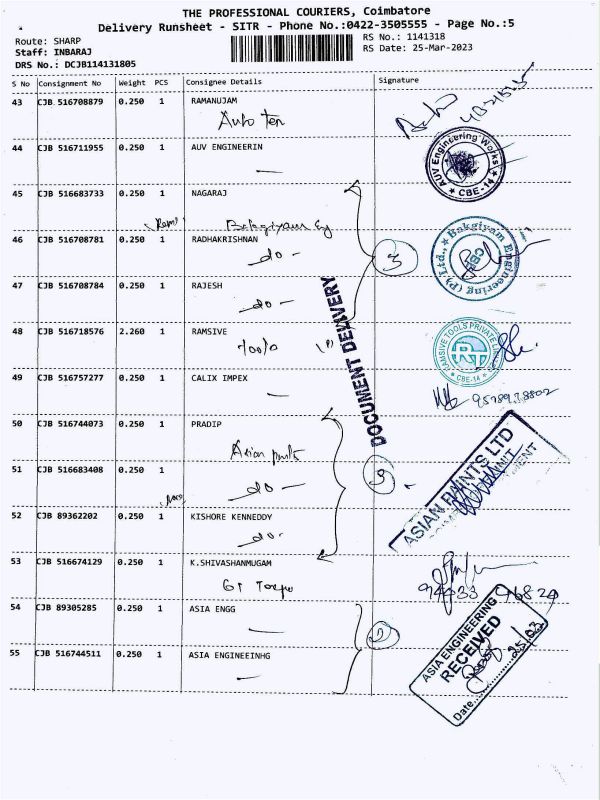 THE PROFESSIONAL COURIERS, Coimbatore
Delivery Runsheet - SITR - Phone No.:0422-3505555 - Page No.:5
Route: SHARP
Staff: INBARAJ
DRS No.: DCJB114131805
RS No.: 1141318
RS Date: 25-Mar-2023
S No Consignment No Weight PCS Consignee Details Signature
43 CJB 516708879 0.250 1 RAMANUJAM
44 CJB 516711955 0.250 1 AUV ENGINEERIN
AUV Engineering Works
CBE-14
45 CJB 516683733 0.250 1 NAGARAJ
Bakgiyam Eg
46 CJB 516708781 0.250 1 RADHAKRISHNAN
do -
3
Bakgiyam Engineering (P) Ltd.,
CBE
47 CJB 516708784 0.250 1 RAJESH
do -
48 CJB 516718576 2.260 1 RAMSIVE
Tools
RAMSIVE TOOLS PRIVATE LIMITED
RT
CBE-14
DOCUMENT DELIVERY
49 CJB 516757277 0.250 1 CALIX IMPEX
9578978802
50 CJB 516744073 0.250 1 PRADIP
Asian paints
51 CJB 516683408 0.250 1
do -
ASIAN PAINTS LTD
52 CJB 89362202 0.250 1 KISHORE KENNEDDY
do -
53 CJB 516674129 0.250 1 K.SHIVASHANMUGAM
94433 96829
54 CJB 89305285 0.250 1 ASIA ENGG
2
55 CJB 516744511 0.250 1 ASIA ENGINEEINHG
ASIA ENGINEERING
RECEIVED
Date 25/03